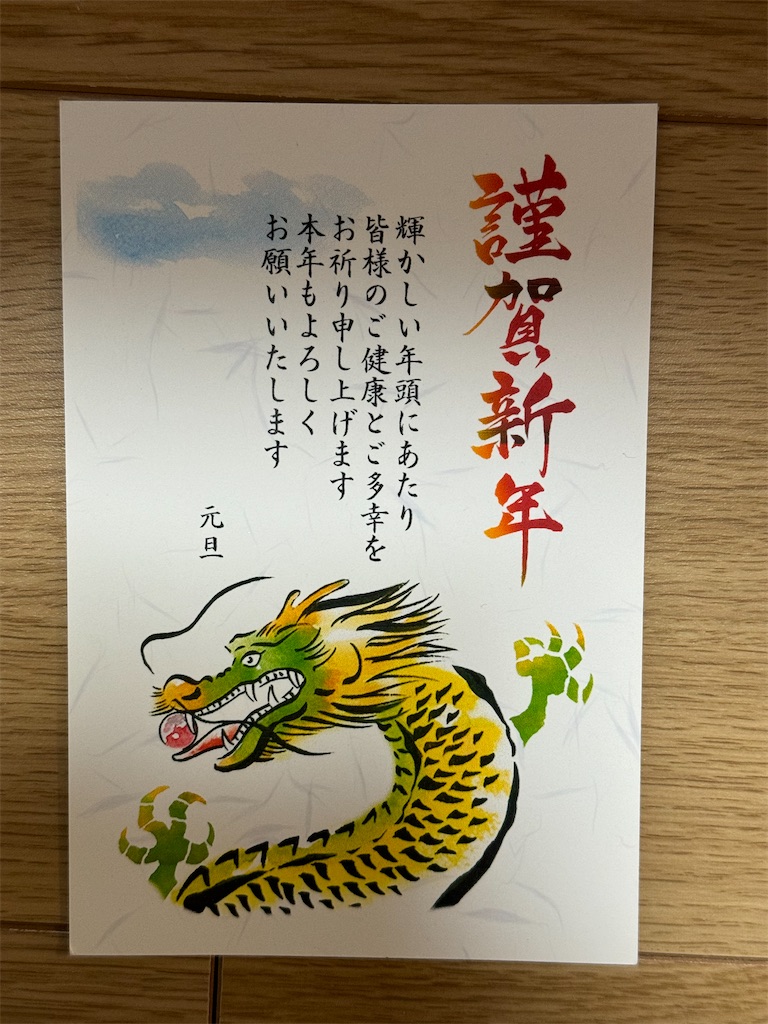 謹賀新年
輝かしい年頭にあたり
皆様のご健康とご多幸を
お祈り申し上げます
本年もよろしく
お願いいたします
元旦